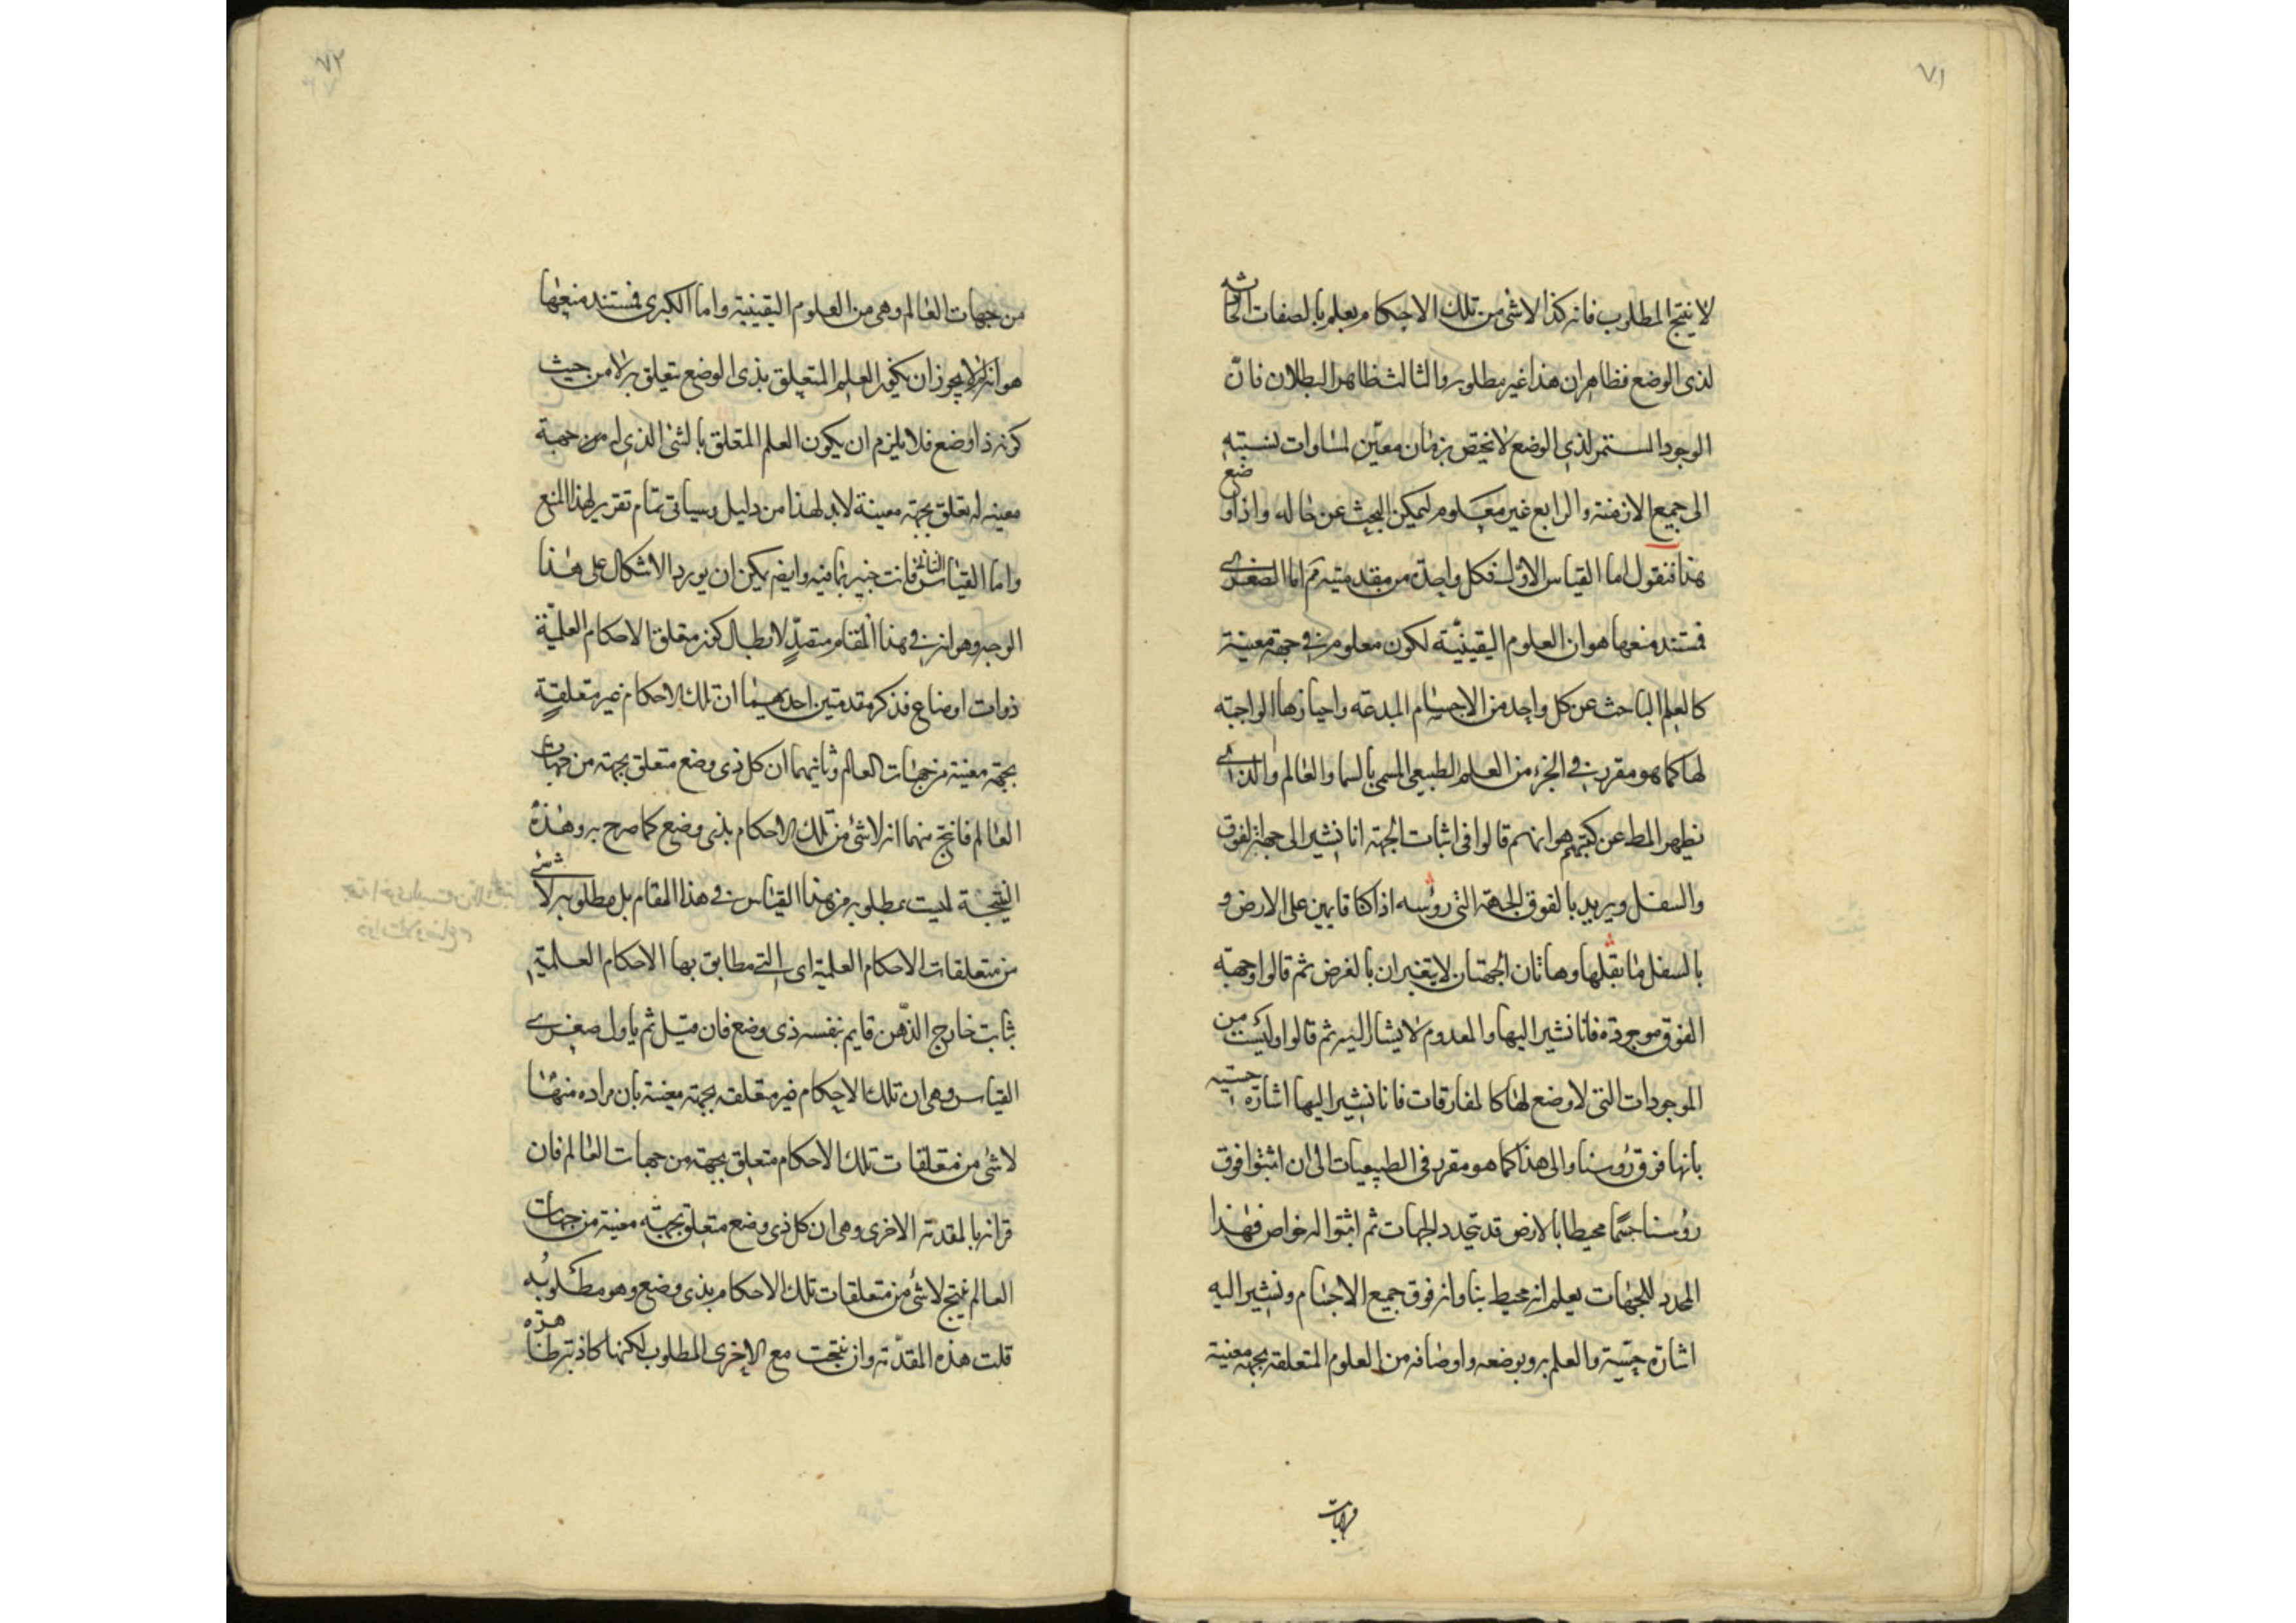 ٧١
لا ينتج المطلوب فانه كذا لا شئ من تلك الاحكام يعلم بالصفات الحادثة
لذى الوضع فظاهر ان هذا غير مطلوبه والثالث ظاهر البطلان فانّ
الوجود المستمر لذى الوضع لا يختص بزمان معيّن لمساوات نسبته
الى جميع الازمنة والرابع غير معلوم ليمكن البحث عن حاله واذا وضع
هذا فنقول اما القياس الاول فكل واحدة من مقدمتيه مم اما الصغرى
فمستند منعها هو ان العلوم اليقينيّة لكون معلومه فى جهة معينة
كالعلم الباحث عن كل واحد من الاجسام المبدعه واحيازها الواجبة
لها كما هو مقرر فى الجزء من العلم الطبيعى المسمى بالسما والعالم والذى
يظهر المط عن كتبهم هو انهم قالوا فى اثبات الجهة انا نشير الى جهة الفوق
والسفل ويريد بالفوق الجهة التى رؤسه اذا كنا قايمين على الارض و
بالسفل ما يقلها وهاتان الجهتان لا يتغيران بالغرض ثم قالوا وجهة
الفوق موجودة فانا نشير اليها والمعدوم لا يشار اليه ثم قالوا وليست من
الموجودات التى لا وضع لها كالمفارقات فانا نشير اليها اشارة حسيه
بانها فوق رؤسنا والى هذا كما هو مقرر فى الطبيعيات الى ان اثبتوا فوق
رؤسنا جسمًا محيطا بالارض قد يتحدد الجهات ثم اثبتوا له خواص فهذا
المحدد للجهات يعلم انه محيط بنا وانه فوق جميع الاجسام ونشير اليه
اشارة حسّية والعلم به وبوضعه واوصافه من العلوم المتعلقة بجهة معينة
من جهات
٧٢
من جهات العالم وهى من العلوم اليقينية واما الكبرى فمستند منعها
هو انه لم لا يجوز ان يكون العلم المتعلق بذى الوضع يتعلق به لا من حيث
كونه ذا وضع فلا يلزم ان يكون العلم المتعلق بالشئ الذى له من جهة
معينه له تعلق بجهة معينة لا بد لهذا من دليل وسياتى تمام تقرير لهذا المنع
واما القياس الثانى فانت خبير بما فيه وايضا يمكن ان يورد الاشكال على هذا
الوجه وهو انه فى هذا المقام متصدٍّ لابطال كون متعلق الاحكام العلميّة
ذوات اوضاع فذكر مقدمتين احدهيما ان تلك الاحكام غير متعلقةٍ
بجهة معينة من جهات العالم وثانيهما ان كل ذى وضع متعلق بجهة من جهات
العالم فانتج منهما انه لا شئ من تلك الاحكام بذى وضع كما صرح به وهذه
النتيجة ليست بمطلوبه من هذا القياس فى هذا المقام بل مطلوبه لا شئ
من متعلقات الاحكام العلمية اى التى مطابق بها الاحكام العلمية
ثابت خارج الذّهن قايم بنفسه ذى وضع فان قيل ثم ياول صغرى
القياس وهى ان تلك الاحكام غير متعلقه بجهة معينة بان مراده منها
لا شئ من متعلقات تلك الاحكام متعلق بجهة من جهات العالم فان
قرانه بالمقدمة الاخرى وهى ان كل ذى وضع متعلق بجهة معينة من جهات
العالم ينتج لا شئ من متعلقات تلك الاحكام بذى وضع وهو مطلوبُه
قلت هذه المقدّمة وان نتجت مع الاخرى المطلوب لكنها كاذبة